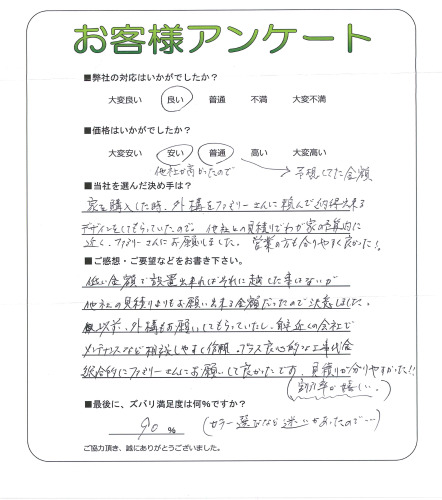 お客様アンケート
■弊社の対応はいかがでしたか？
大変良い 良い 普通 不満 大変不満
■価格はいかがでしたか？
大変安い 安い 普通 高い 大変高い
他社が高かったので → 予想してた金額
■当社を選んだ決め手は？
家を購入した時、外構をファミリーさんに頼んで納得出来る
デザインをしてもらっていたので。他社との見積りでわが家の予算内に
近く、ファミリーさんにお願いしました。営業の方も合りやすく良かった！！
■ご感想・ご要望などをお書き下さい。
低い金額で設置出来ればそれに越した事はないが
他社の見積りよりもお願い出来る金額だったので決着しました。
以前、外構もお願いしてもらっていたし、近くの会社で
メンテナンスなど相談しやすく信頼。プラス良心的な工事代金
総合的にファミリーさんにお願いして良かったです。見積りが分りやすかった!!
(割引率が嬉しい。)
■最後に、ズバリ満足度は何％ですか？
90 % (カラー選びなど迷いがあったので…)
ご協力頂き、誠にありがとうございました。